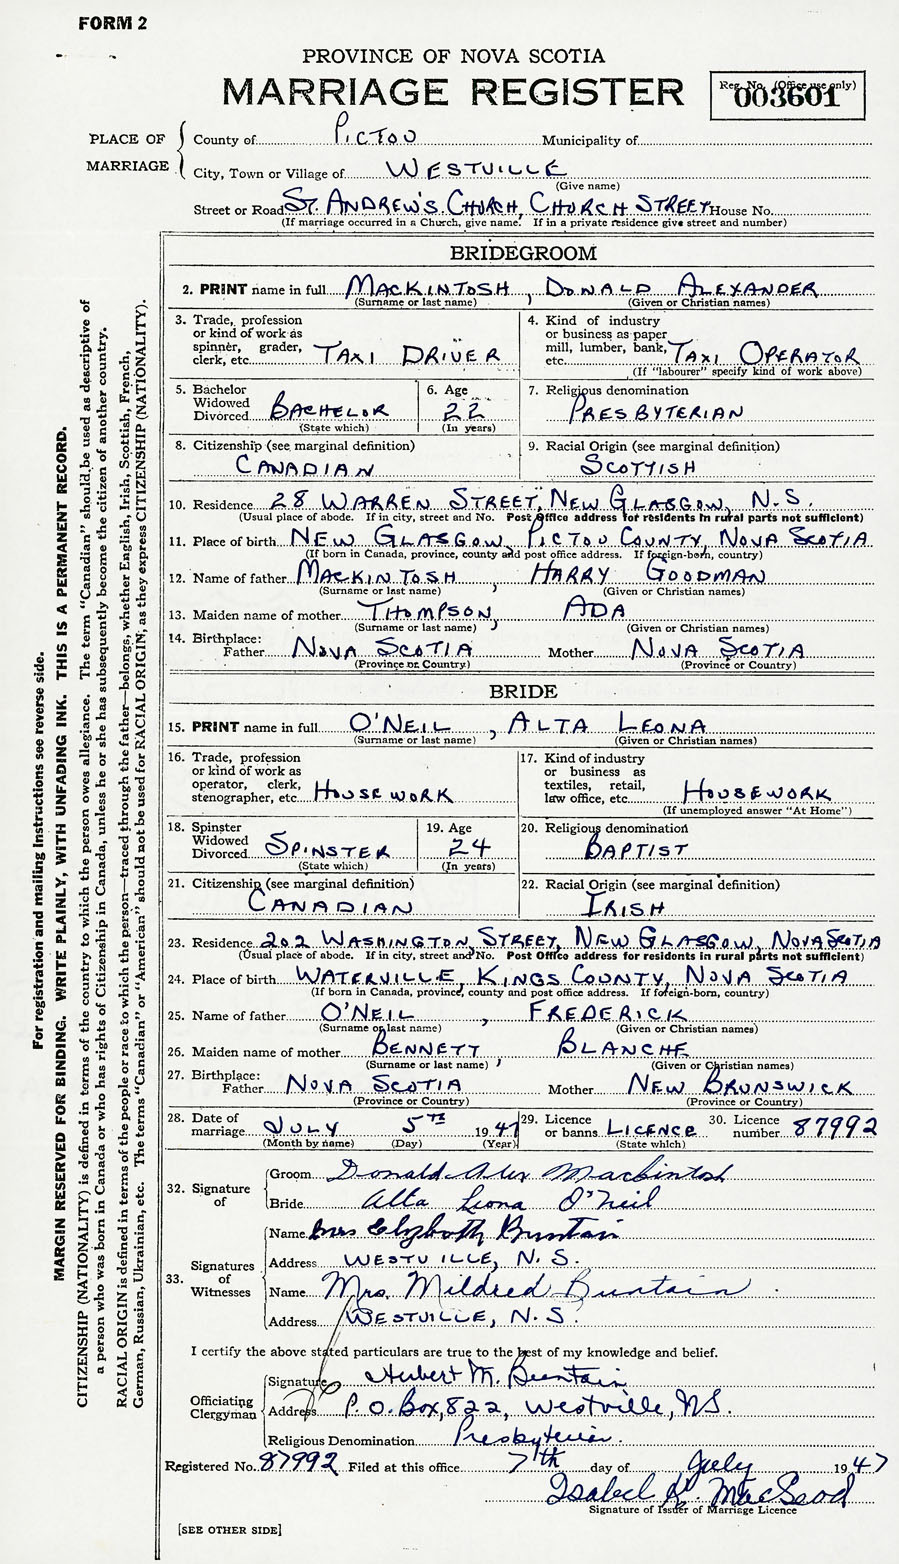 FORM 2
PROVINCE OF NOVA SCOTIA
MARRIAGE REGISTER
Reg. No. (Office use only)
003601
PLACE OF MARRIAGE
County of PICTOU Municipality of
City, Town or Village of WESTVILLE
(Give name)
Street or Road ST. ANDREW'S CHURCH, CHURCH STREET House No.
(If marriage occurred in a Church, give name. If in a private residence give street and number)
BRIDEGROOM
2. PRINT name in full MACKINTOSH, DONALD ALEXANDER
(Surname or last name) (Given or Christian names)
3. Trade, profession or kind of work as spinner, grader, clerk, etc. TAXI DRIVER
4. Kind of industry or business as paper mill, lumber, bank, etc. TAXI OPERATOR
(If "labourer" specify kind of work above)
5. Bachelor Widowed Divorced BACHELOR
(State which)
6. Age 22
(In years)
7. Religious denomination PRESBYTERIAN
8. Citizenship (see marginal definition) CANADIAN
9. Racial Origin (see marginal definition) SCOTTISH
10. Residence 28 WARREN STREET, NEW GLASGOW, N.S.
(Usual place of abode. If in city, street and No. Post Office address for residents in rural parts not sufficient)
11. Place of birth NEW GLASGOW, PICTOU COUNTY, NOVA SCOTIA
(If born in Canada, province, county and post office address. If foreign-born, country)
12. Name of father MACKINTOSH, HARRY GOODMAN
(Surname or last name) (Given or Christian names)
13. Maiden name of mother THOMPSON, ADA
(Surname or last name) (Given or Christian names)
14. Birthplace:
Father NOVA SCOTIA Mother NOVA SCOTIA
(Province or Country) (Province or Country)
BRIDE
15. PRINT name in full O'NEIL, ALTA LEONA
(Surname or last name) (Given or Christian names)
16. Trade, profession or kind of work as operator, clerk, stenographer, etc. HOUSEWORK
17. Kind of industry or business as textiles, retail, law office, etc. HOUSEWORK
(If unemployed answer "At Home")
18. Spinster Widowed Divorced SPINSTER
(State which)
19. Age 24
(In years)
20. Religious denomination BAPTIST
21. Citizenship (see marginal definition) CANADIAN
22. Racial Origin (see marginal definition) IRISH
23. Residence 202 WASHINGTON STREET, NEW GLASGOW, NOVA SCOTIA
(Usual place of abode. If in city, street and No. Post Office address for residents in rural parts not sufficient)
24. Place of birth WATERVILLE, KINGS COUNTY, NOVA SCOTIA
(If born in Canada, province, county and post office address. If foreign-born, country)
25. Name of father O'NEIL, FREDERICK
(Surname or last name) (Given or Christian names)
26. Maiden name of mother BENNETT, BLANCHE
(Surname or last name) (Given or Christian names)
27. Birthplace:
Father NOVA SCOTIA Mother NEW BRUNSWICK
(Province or Country) (Province or Country)
28. Date of marriage JULY 5TH 1947
(Month by name) (Day) (Year)
29. Licence or banns LICENCE
(State which)
30. Licence number 87992
32. Signature of
Groom Donald Alex Mackintosh
Bride Alta Leona O'Neil
33. Signatures of Witnesses
Name Mrs Elizbath Buntain
Address WESTVILLE, N.S.
Name Mrs. Mildred Buntain
Address WESTVILLE, N.S.
I certify the above stated particulars are true to the best of my knowledge and belief.
Officiating Clergyman
Signature Herbert M. Buntain
Address P.O. Box, 822, Westville, N.S.
Religious Denomination Presbyterian.
Registered No. 87992 Filed at this office 7th day of July 1947
Isabel H. MacLeod
Signature of Issuer of Marriage Licence
[SEE OTHER SIDE]
For registration and mailing instructions see reverse side.
MARGIN RESERVED FOR BINDING. WRITE PLAINLY, WITH UNFADING INK. THIS IS A PERMANENT RECORD.
CITIZENSHIP (NATIONALITY) is defined in terms of the country to which the person owes allegiance. The term "Canadian" should be used as descriptive of
a person who was born in Canada or who has rights of Citizenship in Canada, unless he or she has subsequently become the citizen of another country.
RACIAL ORIGIN is defined in terms of the people or race to which the person—traced through the father—belongs, whether English, Irish, Scottish, French,
German, Russian, Ukrainian, etc. The terms "Canadian" or "American" should not be used for RACIAL ORIGIN, as they express CITIZENSHIP (NATIONALITY).